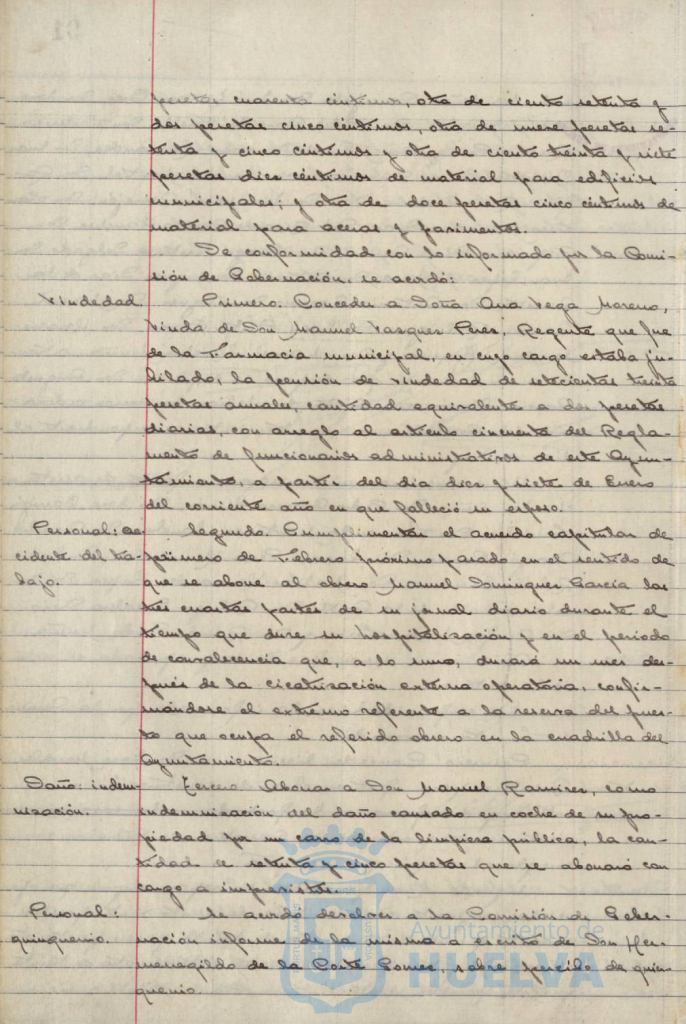 pesetas cuarenta céntimos, otra de ciento setenta y
dos pesetas cinco céntimos, otra de nueve pesetas se-
tenta y cinco céntimos y otra de ciento treinta y siete
pesetas diez céntimos de material para edificios
municipales; y otra de doce pesetas cinco céntimos de
material para aceras y pavimentos.
De conformidad con lo informado por la Comi-
sión de Gobernación, se acordó:
Viudedad. Primero. Conceder a Doña Ana Vega Moreno,
viuda de Don Manuel Vasquez Perez, Regente que fue
de la Farmacia municipal, en cuyo cargo estaba ju-
bilado, la pensión de viudedad de setecientas treinta
pesetas anuales, cantidad equivalente a dos pesetas
diarias, con arreglo al artículo cincuenta del Regla-
mento de funcionarios administrativos de este Ayun-
tamiento, a partir del dia diez y siete de Enero
del corriente año en que falleció su esposo.
Personal: ac- Segundo. Cumplimentar el acuerdo capitular de
cidente del tra- primero de Febrero próximo pasado en el sentido de
bajo. que se abone al obrero Manuel Dominguez García las
tres cuartas partes de su jornal diario durante el
tiempo que dure su hospitalización y en el periodo
de convalescencia que, a lo sumo, durará un mes des-
pués de la cicatrización externa operatoria, confir-
mándose el extremo referente a la reserva del pues-
to que ocupa el referido obrero en la cuadrilla del
Ayuntamiento.
Daño: indem- Tercero Abonar a Don Manuel Ramirez, como
nización. indemnización del daño causado en coche de su pro-
piedad por un carro de la limpieza pública, la can-
tidad de setenta y cinco pesetas que se abonará con
cargo a imprevistos.
Personal: Se acordó devolver a la Comisión de Gober-
quinquenio. nación informe de la misma a escrito de Don Her-
menegildo de la Corte Gomez, sobre percibo de quin-
quenio.
Ayuntamiento de
HUELVA